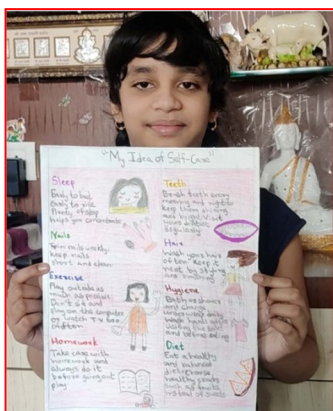 "My Idea of Self-Care"
Sleep
Early to bed
early to rise
Plenty of sleep
helps you concentrate
Nails
Trim nails weekly
keep nails
short and clean
Exercise
Play outside as
much as possible
Don't sit and
play on the computer
or watch TV too
often
Homework
Take care with
homework and
always do it
before going out
play
Teeth
Brush teeth every
morning and night to
keep them shining
and bright Visit
your dentist
regularly
Hair
Wash your hair
often keep it
neat by styling
and trimming
Hygiene
Bath or shower
and change
underwear daily
Wash hands after
visiting the toilet
and before eating
Diet
Eat a healthy
and balanced
diet Choose
healthy snacks
such as fruits
instead of sweets